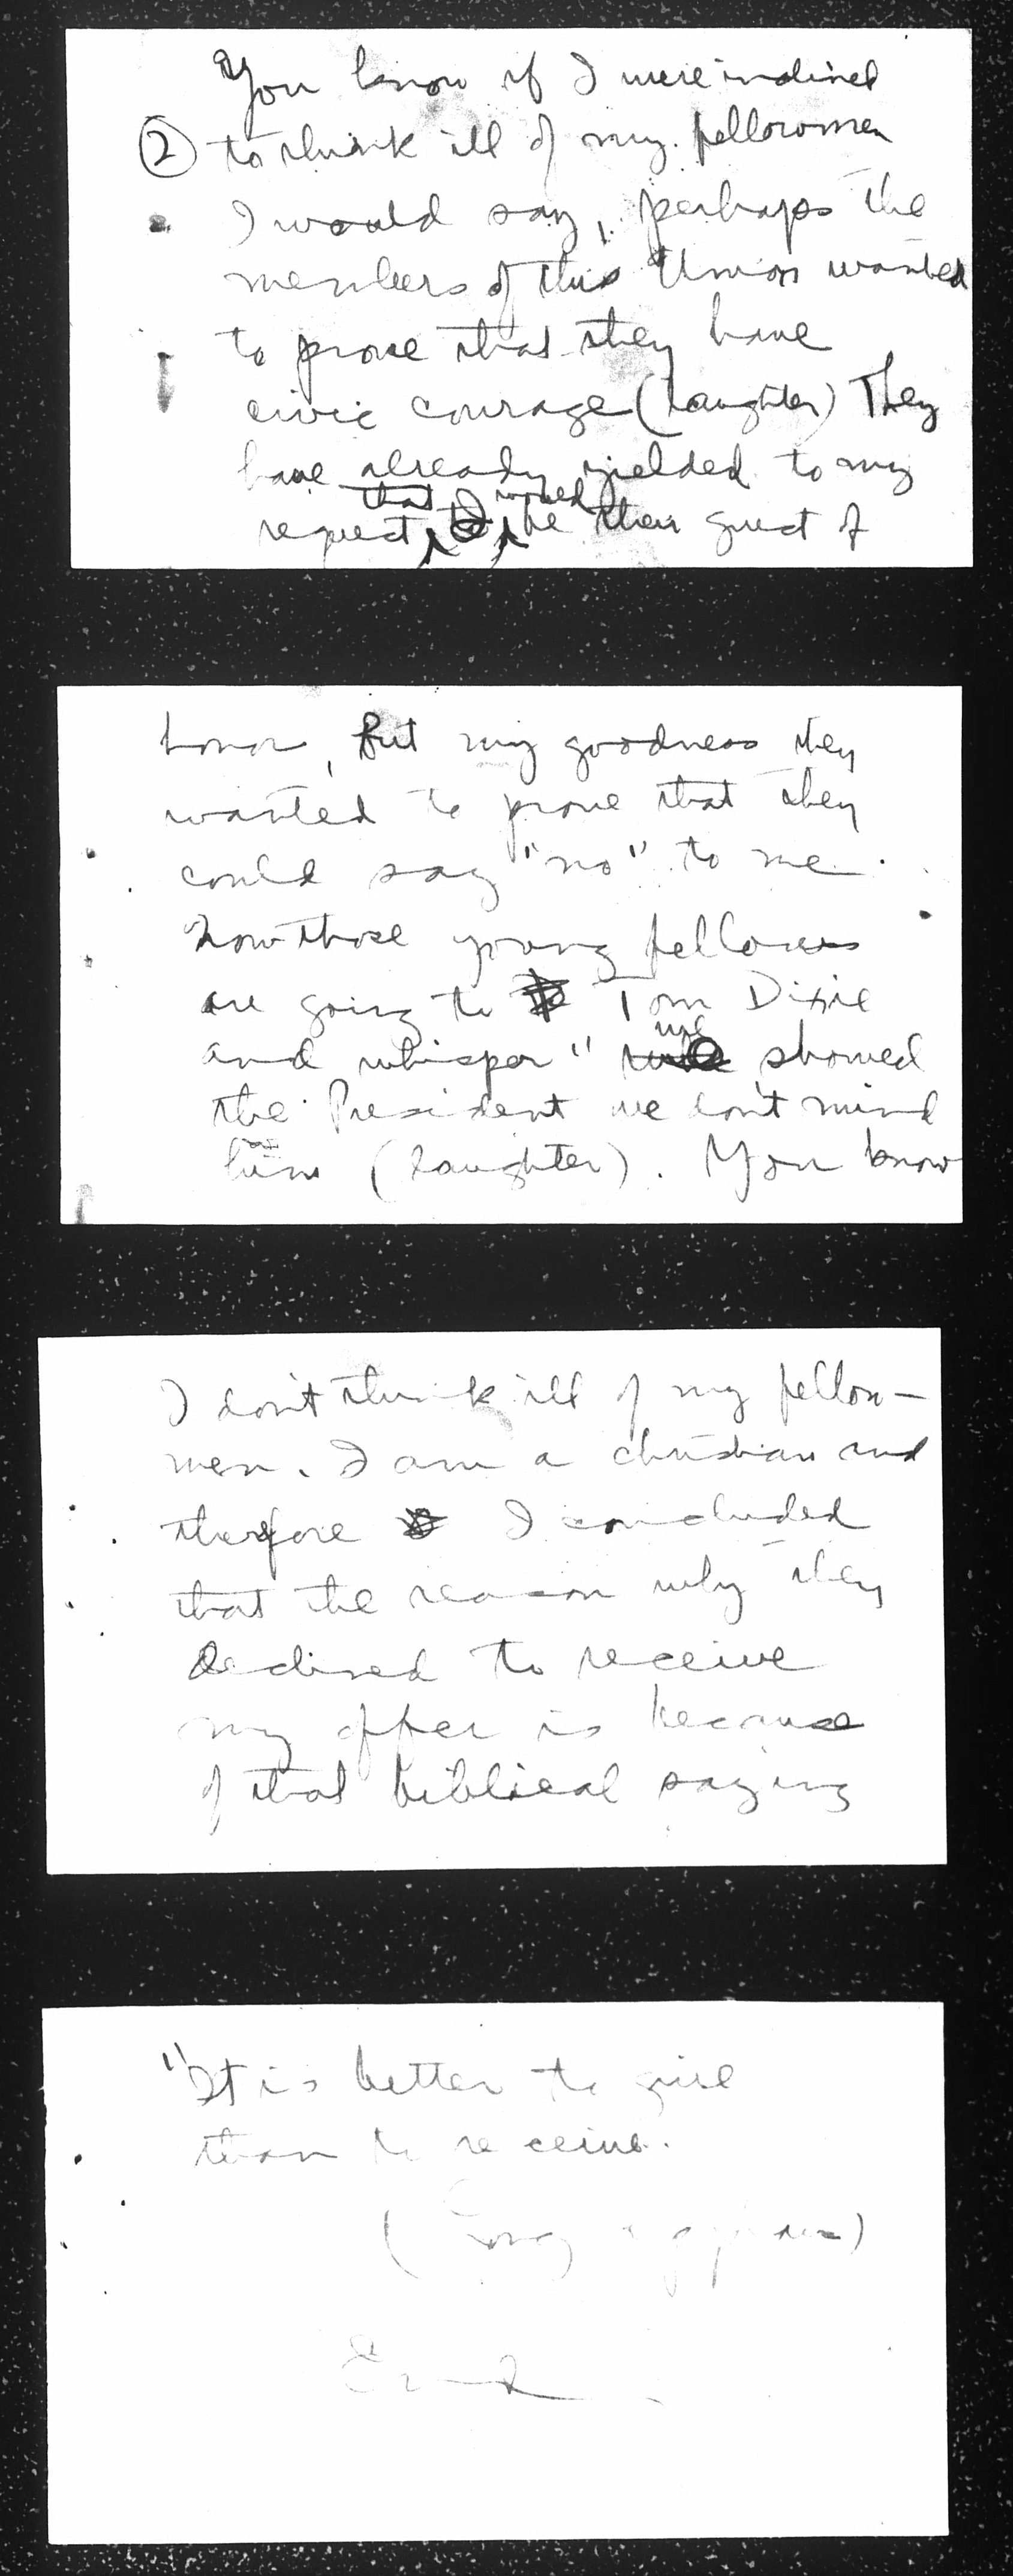 You know if I were inclined
② to think ill of my fellowmen
I would say, perhaps the
members of this Union wanted
to prove that they have
civic courage (laughter) They
have already yielded to my
that I would
request, be their guest of
honor, but my goodness they
wanted to prove that they
could say "no" to me.
Now those young fellows
are going to Tom Dixie
we
and whisper " showed
the President we don't mind
him (laughter). You know
I don't think ill of my fellow-
men. I am a christian and
therefore I concluded
that the reason why they
declined to receive
my offer is because
of that biblical saying
"It is better to give
than to receive.
(Long applause)
End